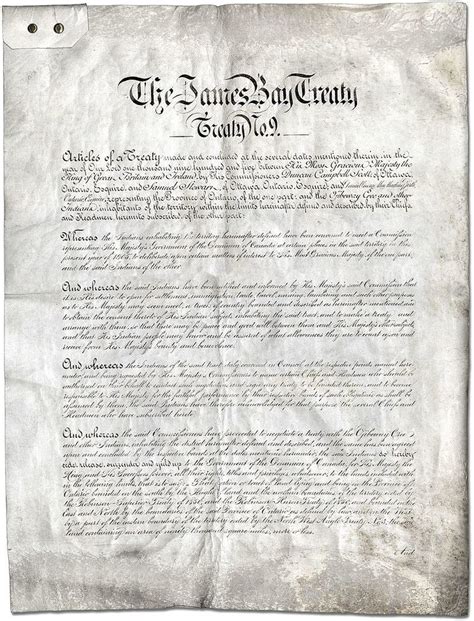 The James Bay Treaty
Treaty No. 9.
Articles of a Treaty made and concluded at the several dates mentioned therein in the
year of Our Lord one thousand nine hundred and five between His Most Gracious Majesty the
King of Great Britain and Ireland by His Commissioners Duncan Campbell Scott of Ottawa
Ontario Esquire and Samuel Stewart of Ottawa Ontario Esquire and
representing the Province of Ontario of the one part and the Ojibeway Cree and other
Indians inhabitants of the territory within the limits hereinafter defined and described by their Chiefs
and Headmen hereunto subscribed of the other part
Whereas the Indians inhabiting the territory hereinafter defined have been convened to meet a Commission
representing His Majesty's Government of the Dominion of Canada at certain places in the said territory in this
present year of 1905 to deliberate upon certain matters of interest to His Most Gracious Majesty of the one part
and the said Indians of the other
And whereas the said Indians have been notified and informed by His Majesty's said Commission that
it is His desire to open for settlement immigration trade travel mining lumbering and such other purposes
as to His Majesty may seem meet a tract of country bounded and described as hereinafter mentioned and
to obtain the consent thereto of His Indian subjects inhabiting the said tract and to make a treaty and
arrange with them so that there may be peace and good will between them and His Majesty's other subjects
and that His Indian people may know and be assured of what allowances they are to count upon and
receive from His Majesty's bounty and benevolence
And whereas the Indians of the said tract duly convened in Council at the respective points named here-
under and being requested by His Majesty's Commissioners to name certain Chiefs and Headmen who should be
authorized on their behalf to conduct such negotiations and sign any treaty to be founded thereon and to become
responsible to His Majesty for the faithful performance by their respective bands of such obligations as shall be
assumed by them the said Indians have therefore acknowledged for that purpose the several Chiefs and
Headmen who have subscribed hereto
And whereas the said Commissioners have proceeded to negotiate a treaty with the Ojibeway Cree
and other Indians inhabiting the district hereinafter defined and described and the same has been agreed
upon and concluded by the respective bands at the dates mentioned hereunder the said Indians do hereby
cede release surrender and yield up to the Government of the Dominion of Canada for His Majesty the
King and His Successors for ever all their rights titles and privileges whatsoever to the lands included within
the following limits that is to say That portion or tract of land lying and being in the Province of
Ontario bounded on the south by the height of land and the northern boundaries of the territory ceded by
the Robinson Superior Treaty of 1850 and the Robinson Huron Treaty of 1850 and bounded on the
East and North by the boundaries of the said Province of Ontario as defined by law and on the west
by a part of the eastern boundary of the territory ceded by the North West Angle Treaty No. 3 the said
land containing an area of ninety thousand square miles more or less.
And